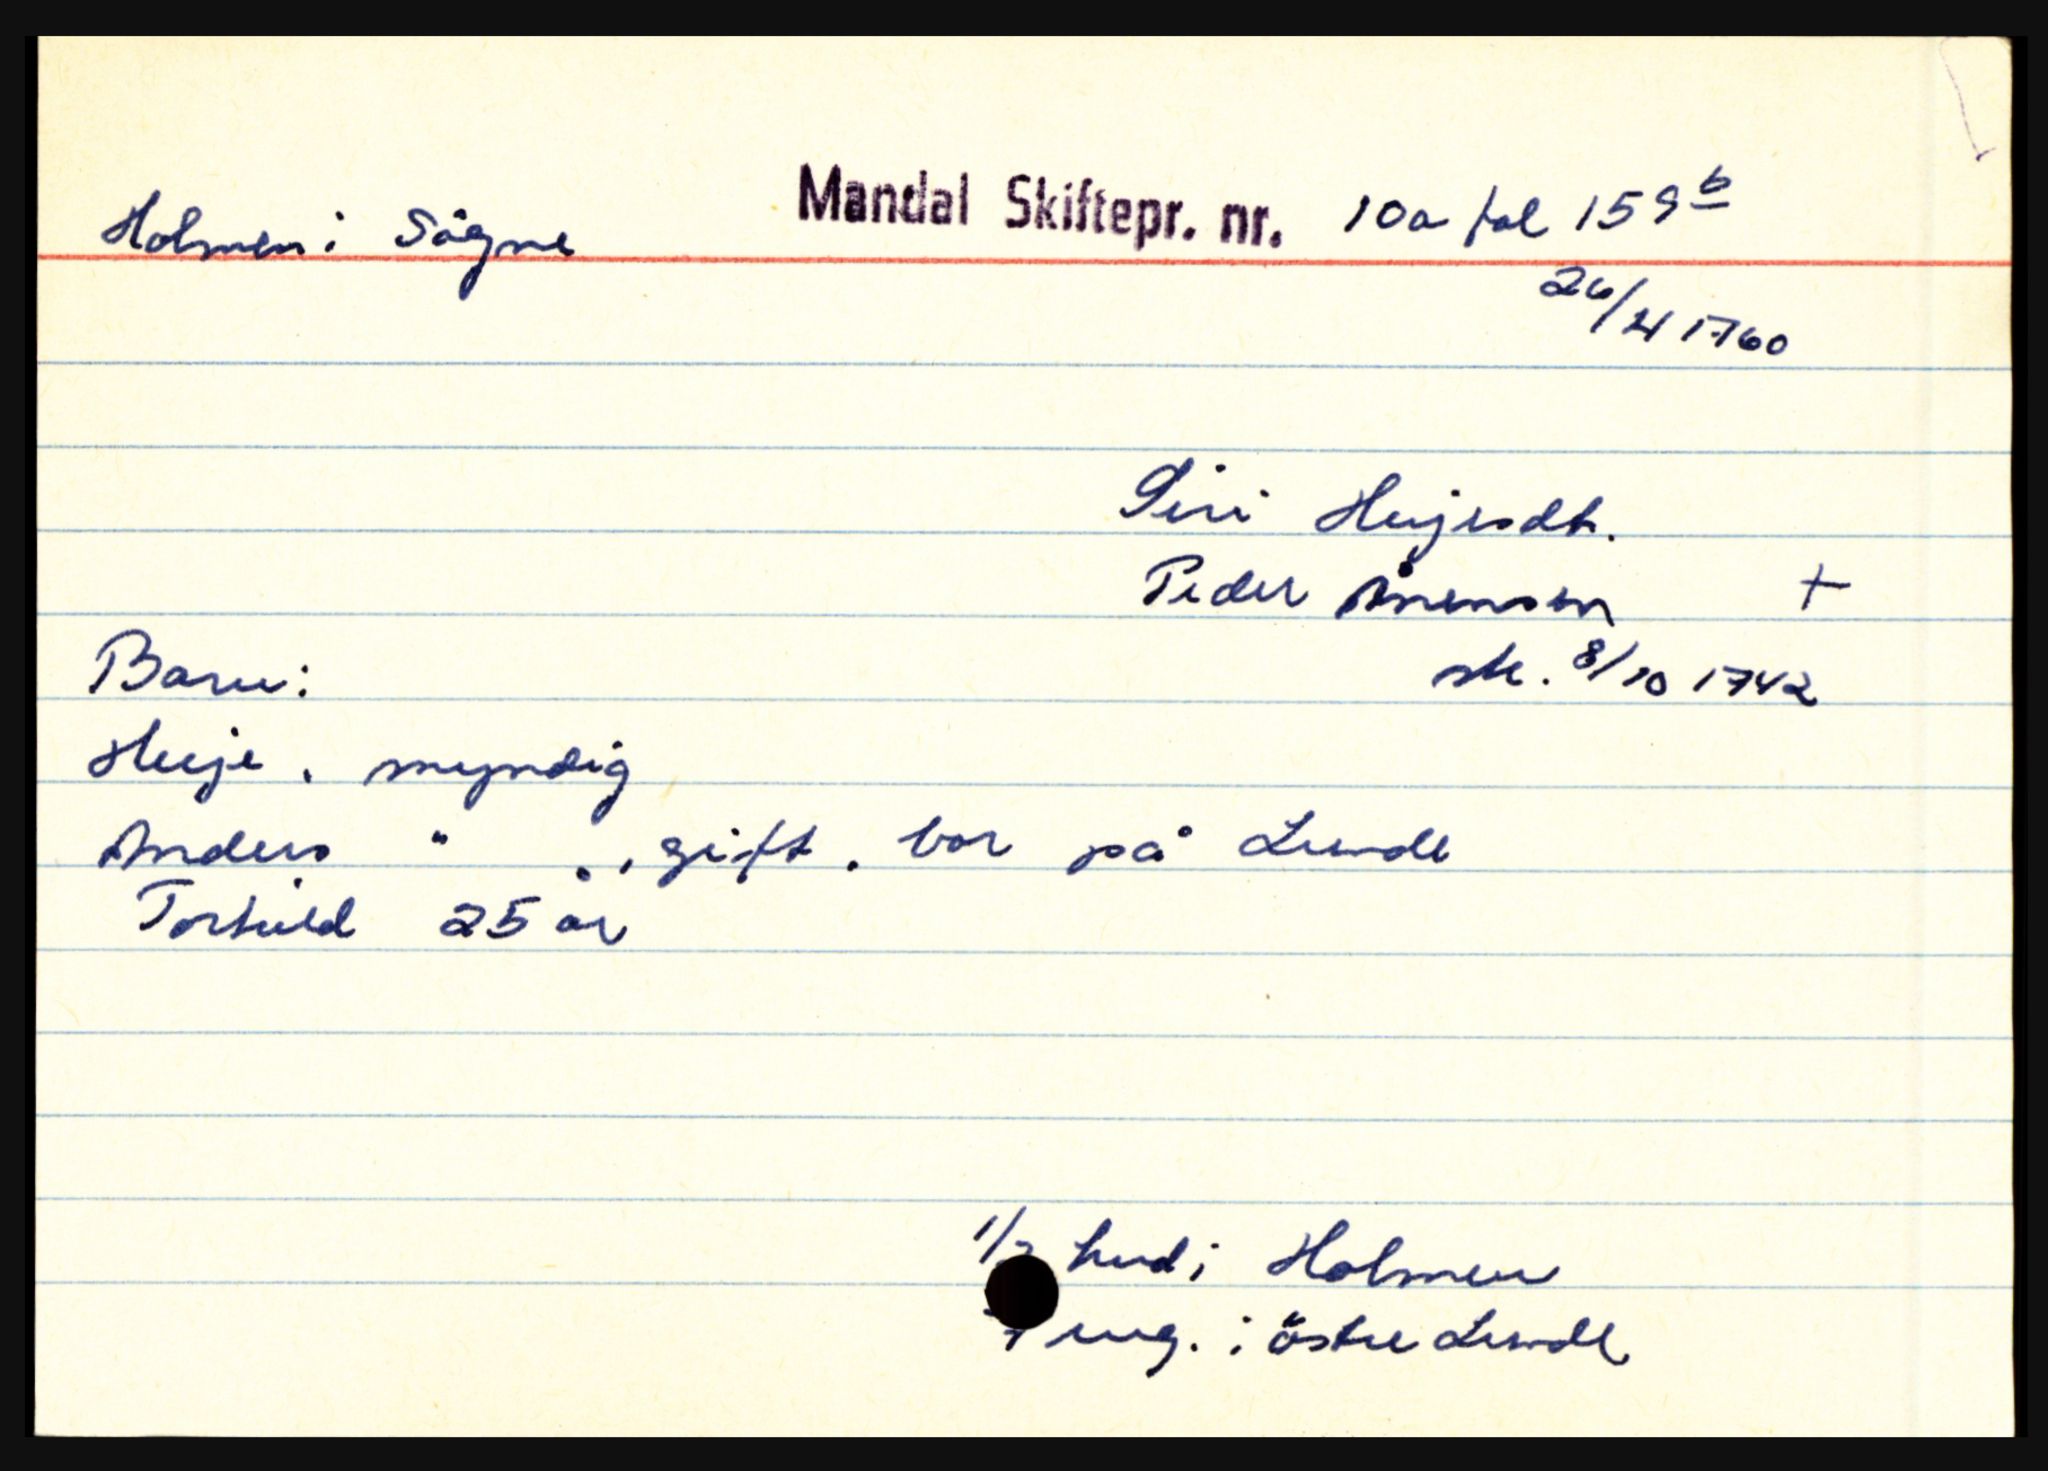 Holmen i Sögne Mandal Skiftepr. nr. 10a fol 159 b
26/4 1760
Siri Heijesdt.
Peder Ånensen +
sk. 8/10 1742
Barn:
Heije. myndig
Anders " ., gift. bor på Lunde
Torkild 25 år
1/2 hud i Holmen
eng. i Östre Lunde